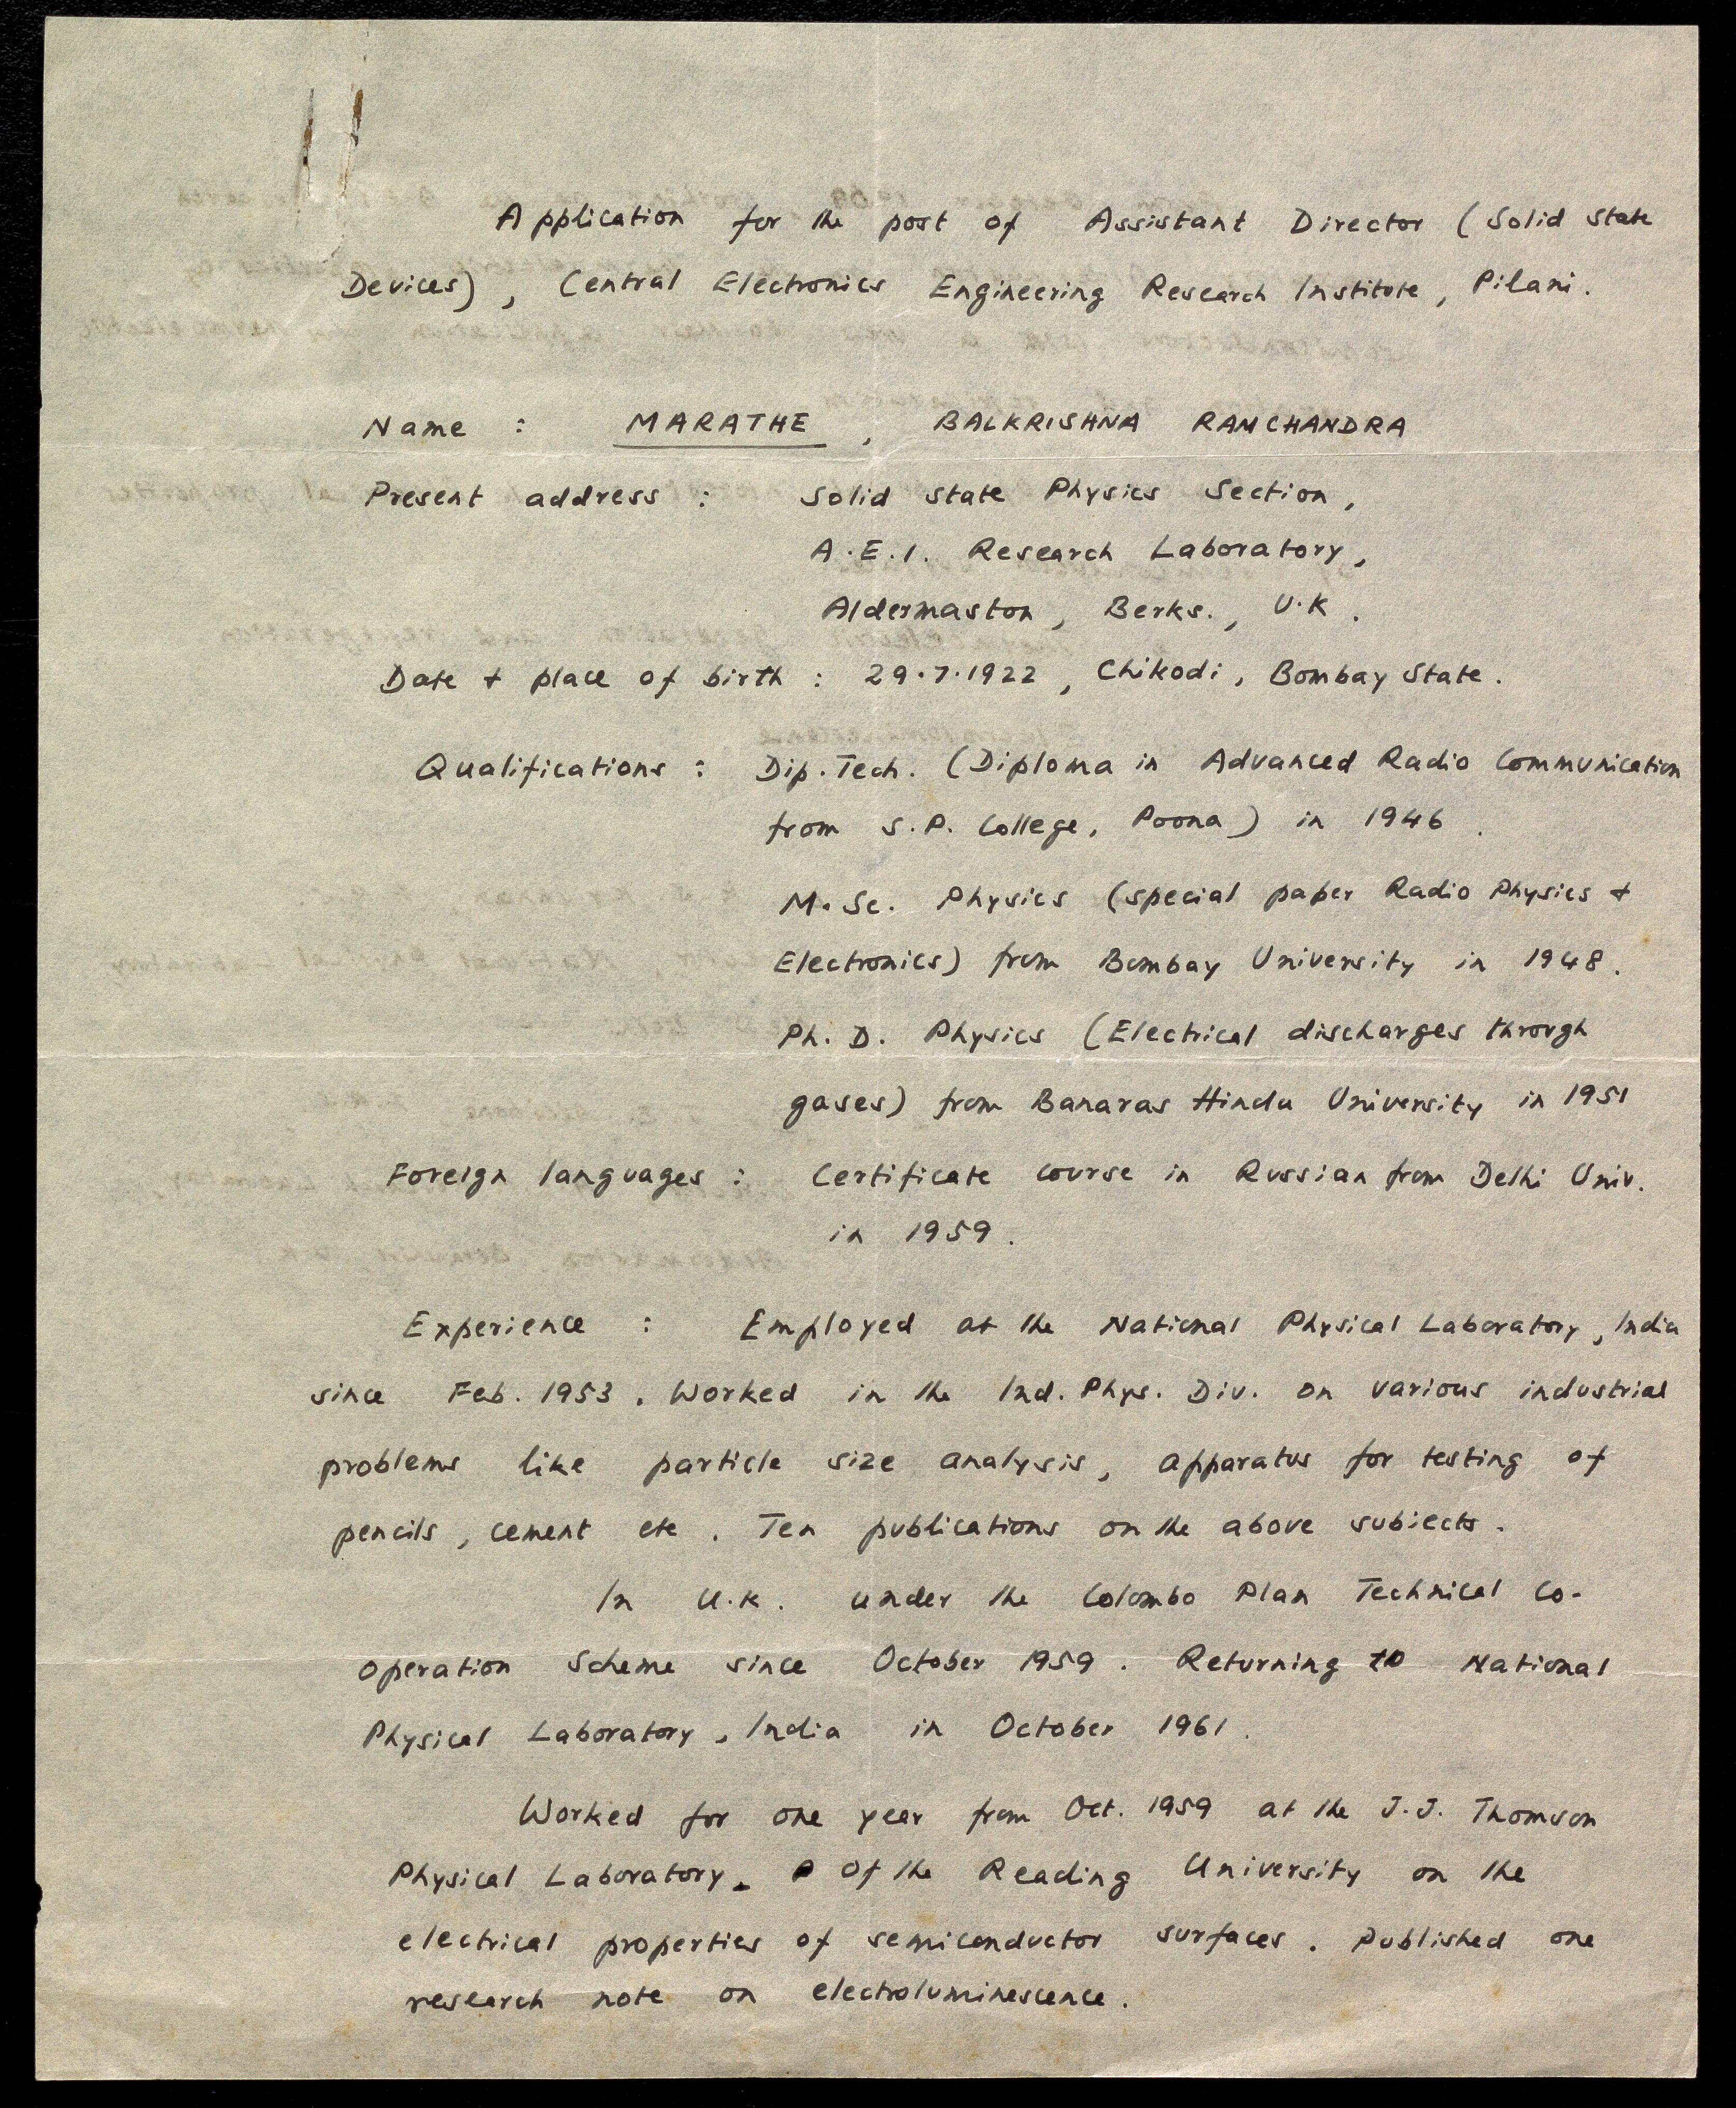 Application for the post of Assistant Director (Solid State
Devices), Central Electronics Engineering Research Institute, Pilani.
Name : MARATHE, BALKRISHNA RAMCHANDRA
Present address : Solid State Physics Section,
A.E.I. Research Laboratory,
Aldermaston, Berks., U.K.
Date + place of birth : 29.7.1922, Chikodi, Bombay State.
Qualifications : Dip.Tech. (Diploma in Advanced Radio Communication
from S.P. College, Poona) in 1946.
M.Sc. Physics (special paper Radio Physics +
Electronics) from Bombay University in 1948.
Ph.D. Physics (Electrical discharges through
gases) from Banaras Hindu University in 1951
Foreign languages : Certificate course in Russian from Delhi Univ.
in 1959.
Experience : Employed at the National Physical Laboratory, India
since Feb. 1953. Worked in the Ind. Phys. Div. on various industrial
problems like particle size analysis, apparatus for testing of
pencils, cement etc. Ten publications on the above subjects.
In U.K. under the Colombo Plan Technical Co-
operation Scheme since October 1959. Returning to National
Physical Laboratory, India in October 1961.
Worked for one year from Oct. 1959 at the J.J. Thomson
Physical Laboratory of the Reading University on the
electrical properties of semiconductor surfaces. Published one
research note on electroluminescence.